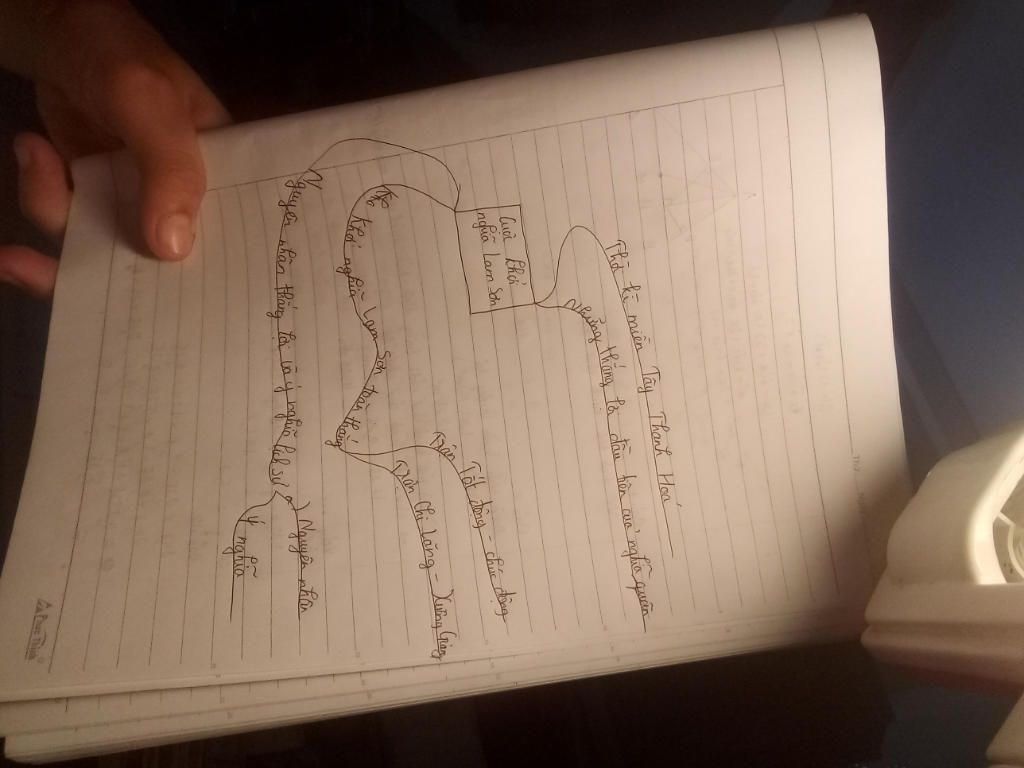 Cuộc khởi
nghĩa Lam Sơn
Thời kì miền Tây Thanh Hoá
Những thắng lợi đầu tiên của nghĩa quân
khởi nghĩa Lam Sơn toàn thắng
Trận Tốt động - chúc động
Trận Chi Lăng - Xương Giang
Nguyên nhân thắng lợi và ý nghĩa lịch sử
Nguyên nhân
ý nghĩa